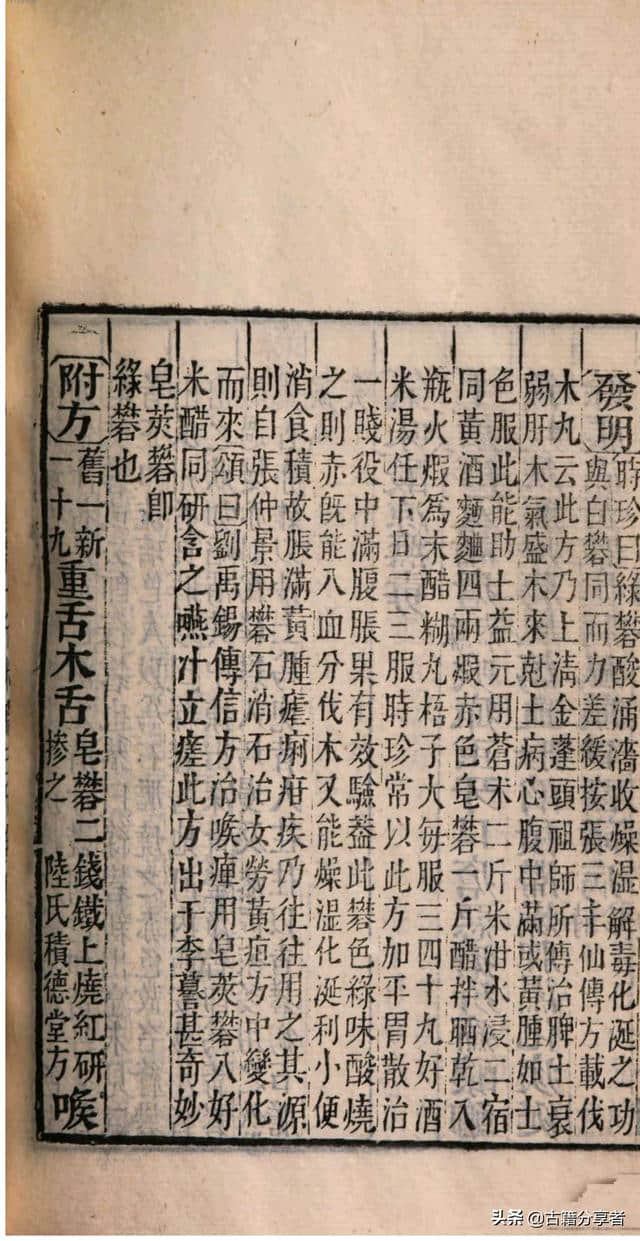 發明
時珍曰綠礬酸涌濇收燥湿解毒化涎之功
與白礬同而力差緩按張三丰仙傳方載伐
木丸云此方乃上淸金蓬頭祖師所傳治脾土衰
弱肝木氣盛木來尅土病心腹中滿或黃腫如土
色服此能助土益元用蒼朮二斤米泔水浸二宿
同黃酒麵麯四兩煆赤色皂礬一斤醋拌晒乾入
瓶火煆爲末醋糊丸梧子大每服三四十丸好酒
米湯任下日二三服時珍常以此方加平胃散治
一賤役中滿腹脹果有效驗葢此礬色綠味酸燒
之則赤旣能入血分伐木又能燥湿化涎利小便
消食積故脹滿黃腫瘧痢疳疾乃往往用之其源
則自張仲景用礬石消石治女勞黃疸方中變化
而來頌曰劉禹錫傳信方治喉痺用皂莢礬入好
米醋同研含之嚥汁立瘥此方出于李謩甚奇妙
皂莢礬卽
綠礬也
附方舊一新一十九重舌木舌皂礬二錢鐵上燒紅研摻之陸氏積德堂方喉
头条 @古籍分享者